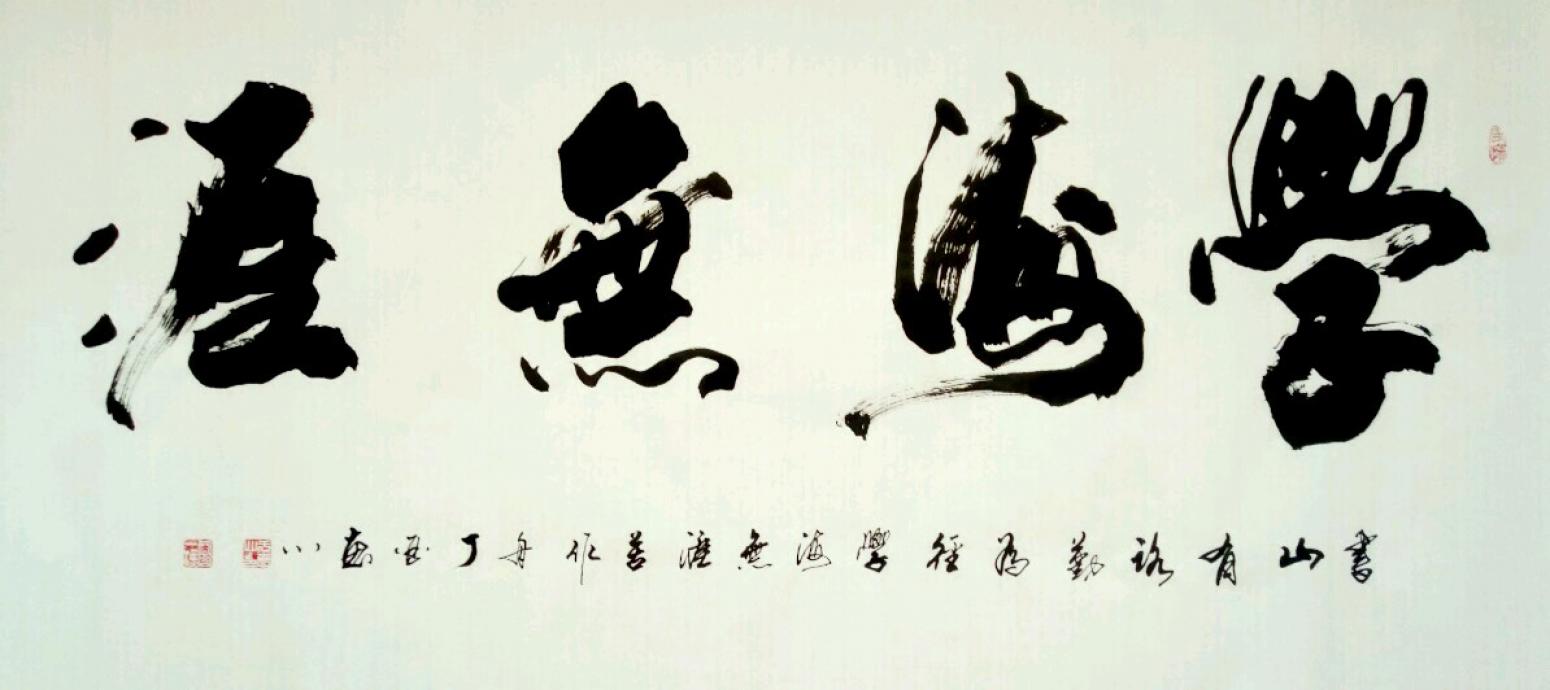 學海無涯
書山有路勤為徑學海無涯苦作舟丁酉